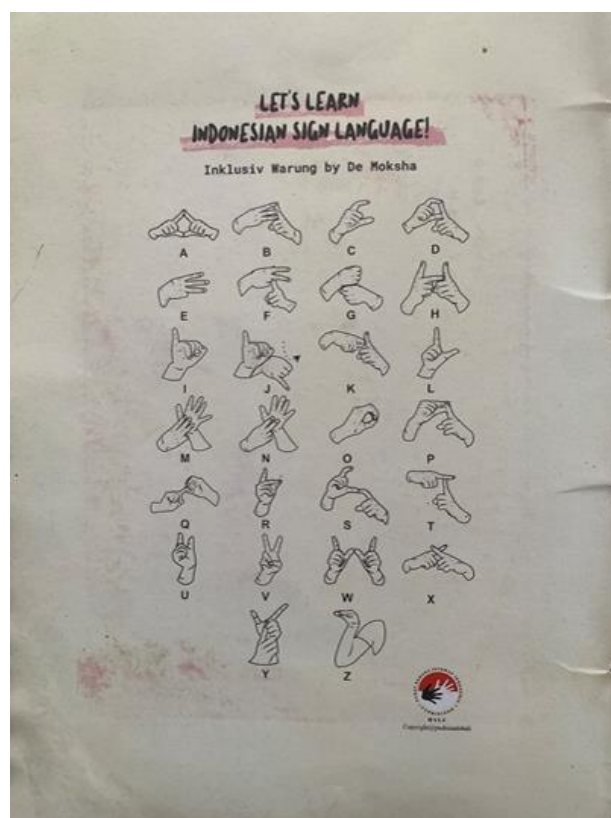 LET'S LEARN
INDONESIAN SIGN LANGUAGE!
Inklusiv Warung by De Moksha
A B C D
E F G H
I J K L
M N O P
Q R S T
U V W X
Y Z
BALI